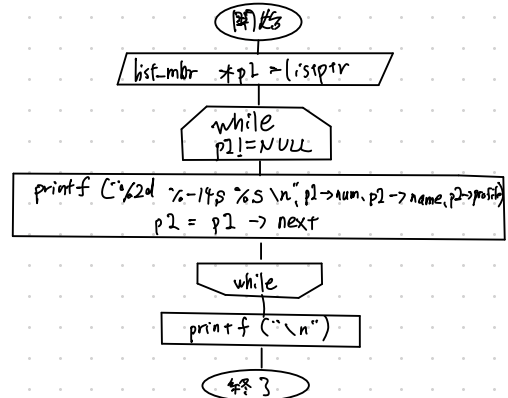 開始
list_mbr *p2 = listptr
while
p2!=NULL
printf ("%2d %-14s %s \n", p2->num, p2->name, p2->profile)
p2 = p2 -> next
while
printf ("\n")
終了